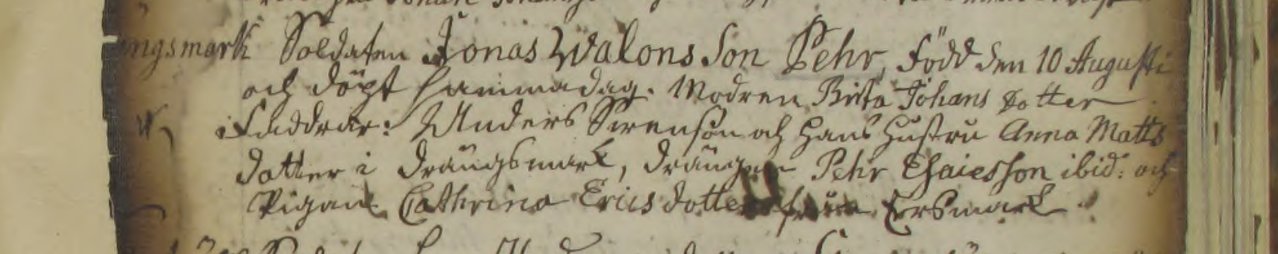 ngsmark Soldaten Jonas Walons Son Pehr, Född den 10 Augusti
och döpt samma dag. Modren Brita Johans dotter
Faddrar: Anders Sörenson och hans hustru Anna Matts
dotter i Drängsmark, drängen Pehr Esaiesson ibid: och
Pigan Cathrina Ericsdotter från Ersmark